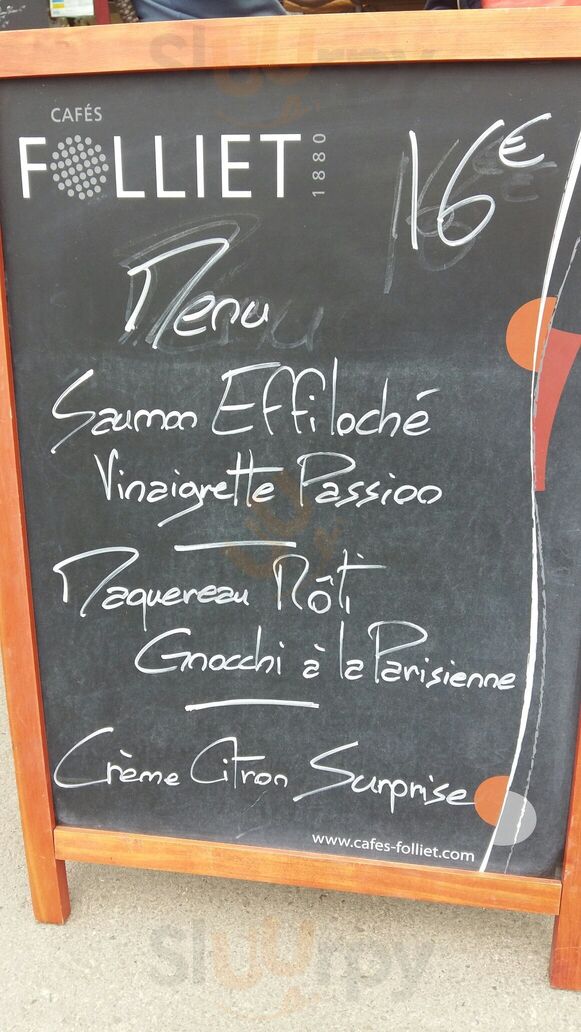 CAFÉS
FOLLIET 1880
16€
Menu
Saumon Effiloché
Vinaigrette Passion
Maquereau Rôti
Gnocchi à la Parisienne
Crème Citron Surprise
www.cafes-folliet.com
Sluurpy
Sluurpy